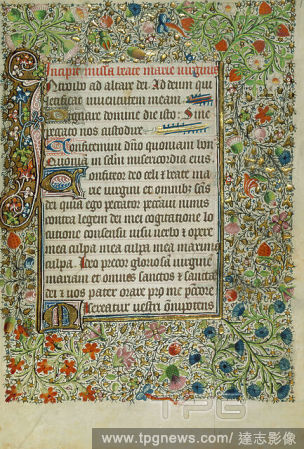 Incipit missa beate marie virginis
Introibo ad altare dei Ad deum qui
letificat iuventutem meam
dignare domine die isto Sine
peccato nos custodire
Confitemini dno quoniam bon
Quoniam in sclm misericordia eius
Confiteor deo celi et beate ma
rie virgini et omnibz scis
dei quia ego peccator peccavi nimis
contra legem dei mei cogitatione lo
cutione consensu visu verbo et opere
mea culpa mea culpa mea maxima
culpa Ideo precor gloriosa virgine
mariam et omnes sanctos et sanctas
dei et vos pater orare pro me pctore
Misereatur vestri omnipotens
TPG
www.tpgnews.com/達志影像